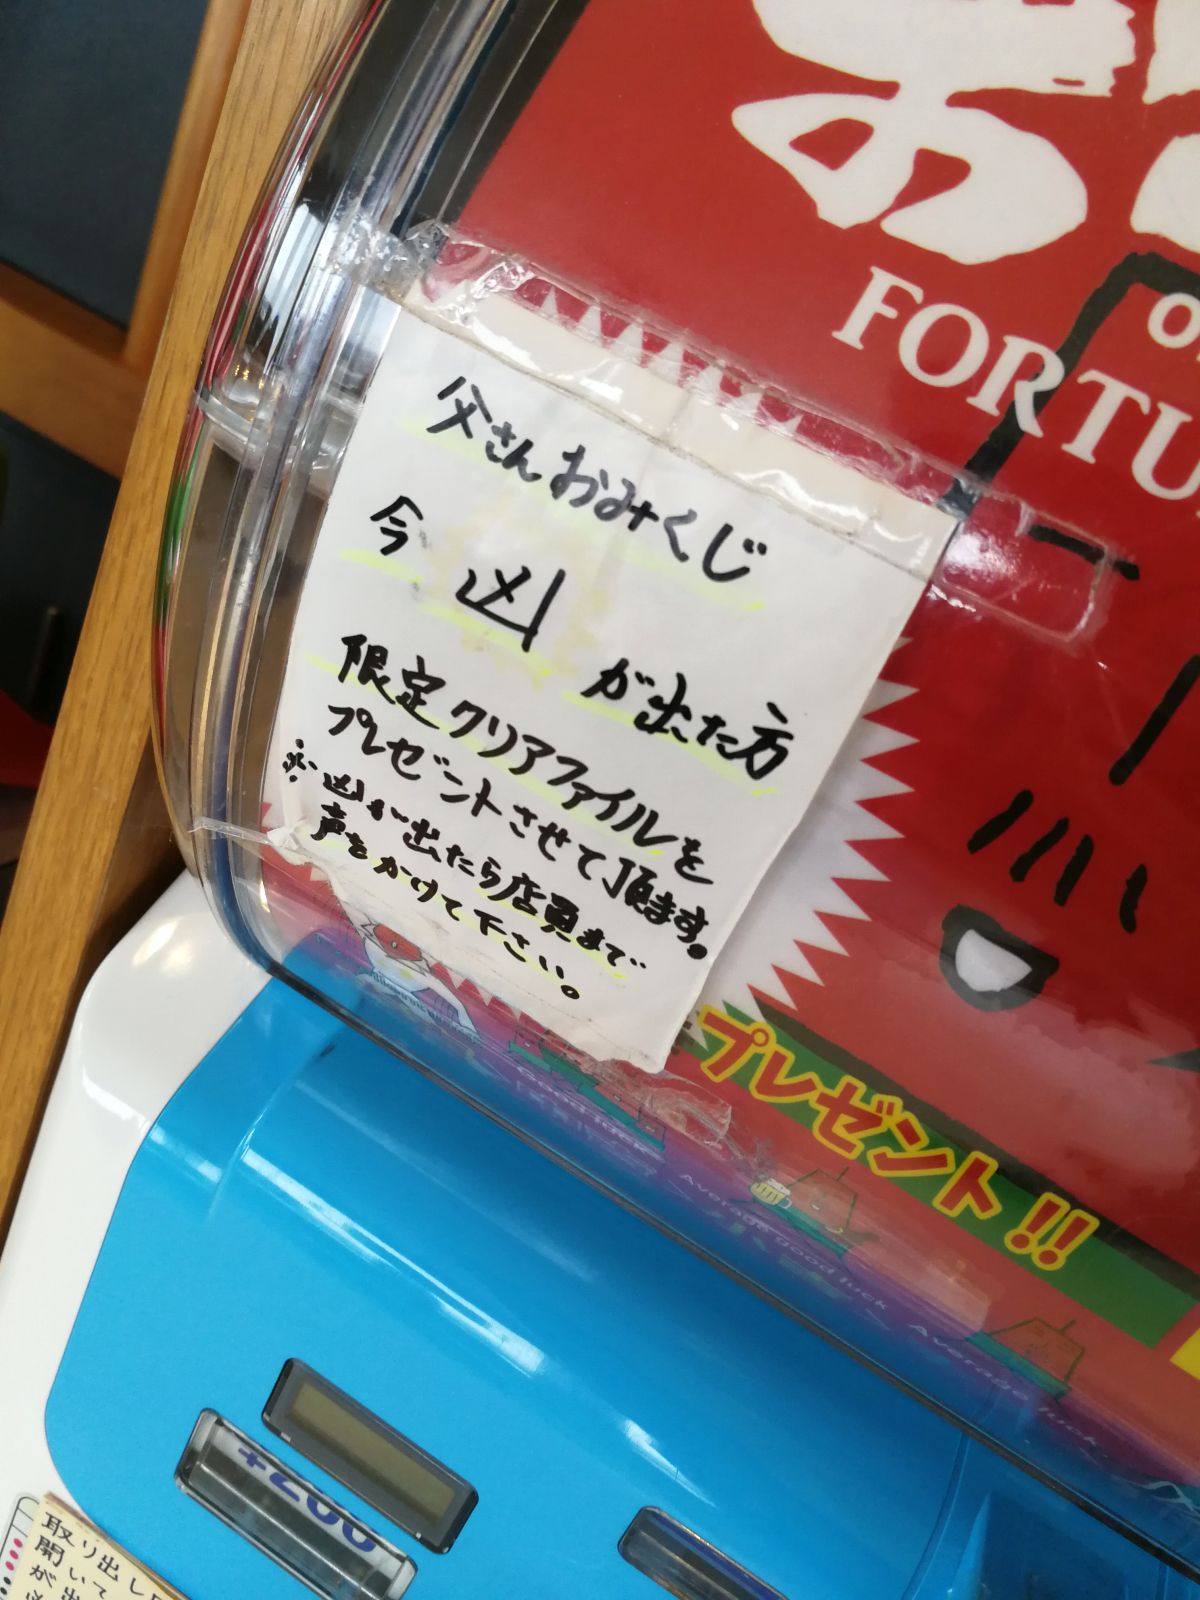 FORTU
父さんおみくじ
今 凶 が出た方
限定クリアファイルを
プレゼントさせて頂ます。
※凶が出たら店員まで
声をかけて下さい。
プレゼント!!
Good luck
Average good luck
Average luck
取り出し
開いて
が出